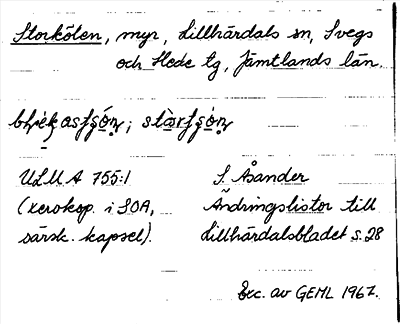 Storköten, myr, Lillhärdals sn, Svegs
och Hede tg, Jämtlands län.
ULMA 755:1
(xerokop. i SOA,
särsk. kapsel).
S Åsander
Ändringslistor till
Lillhärdalsbladet s. 28
Exc. av GEHL 1967.